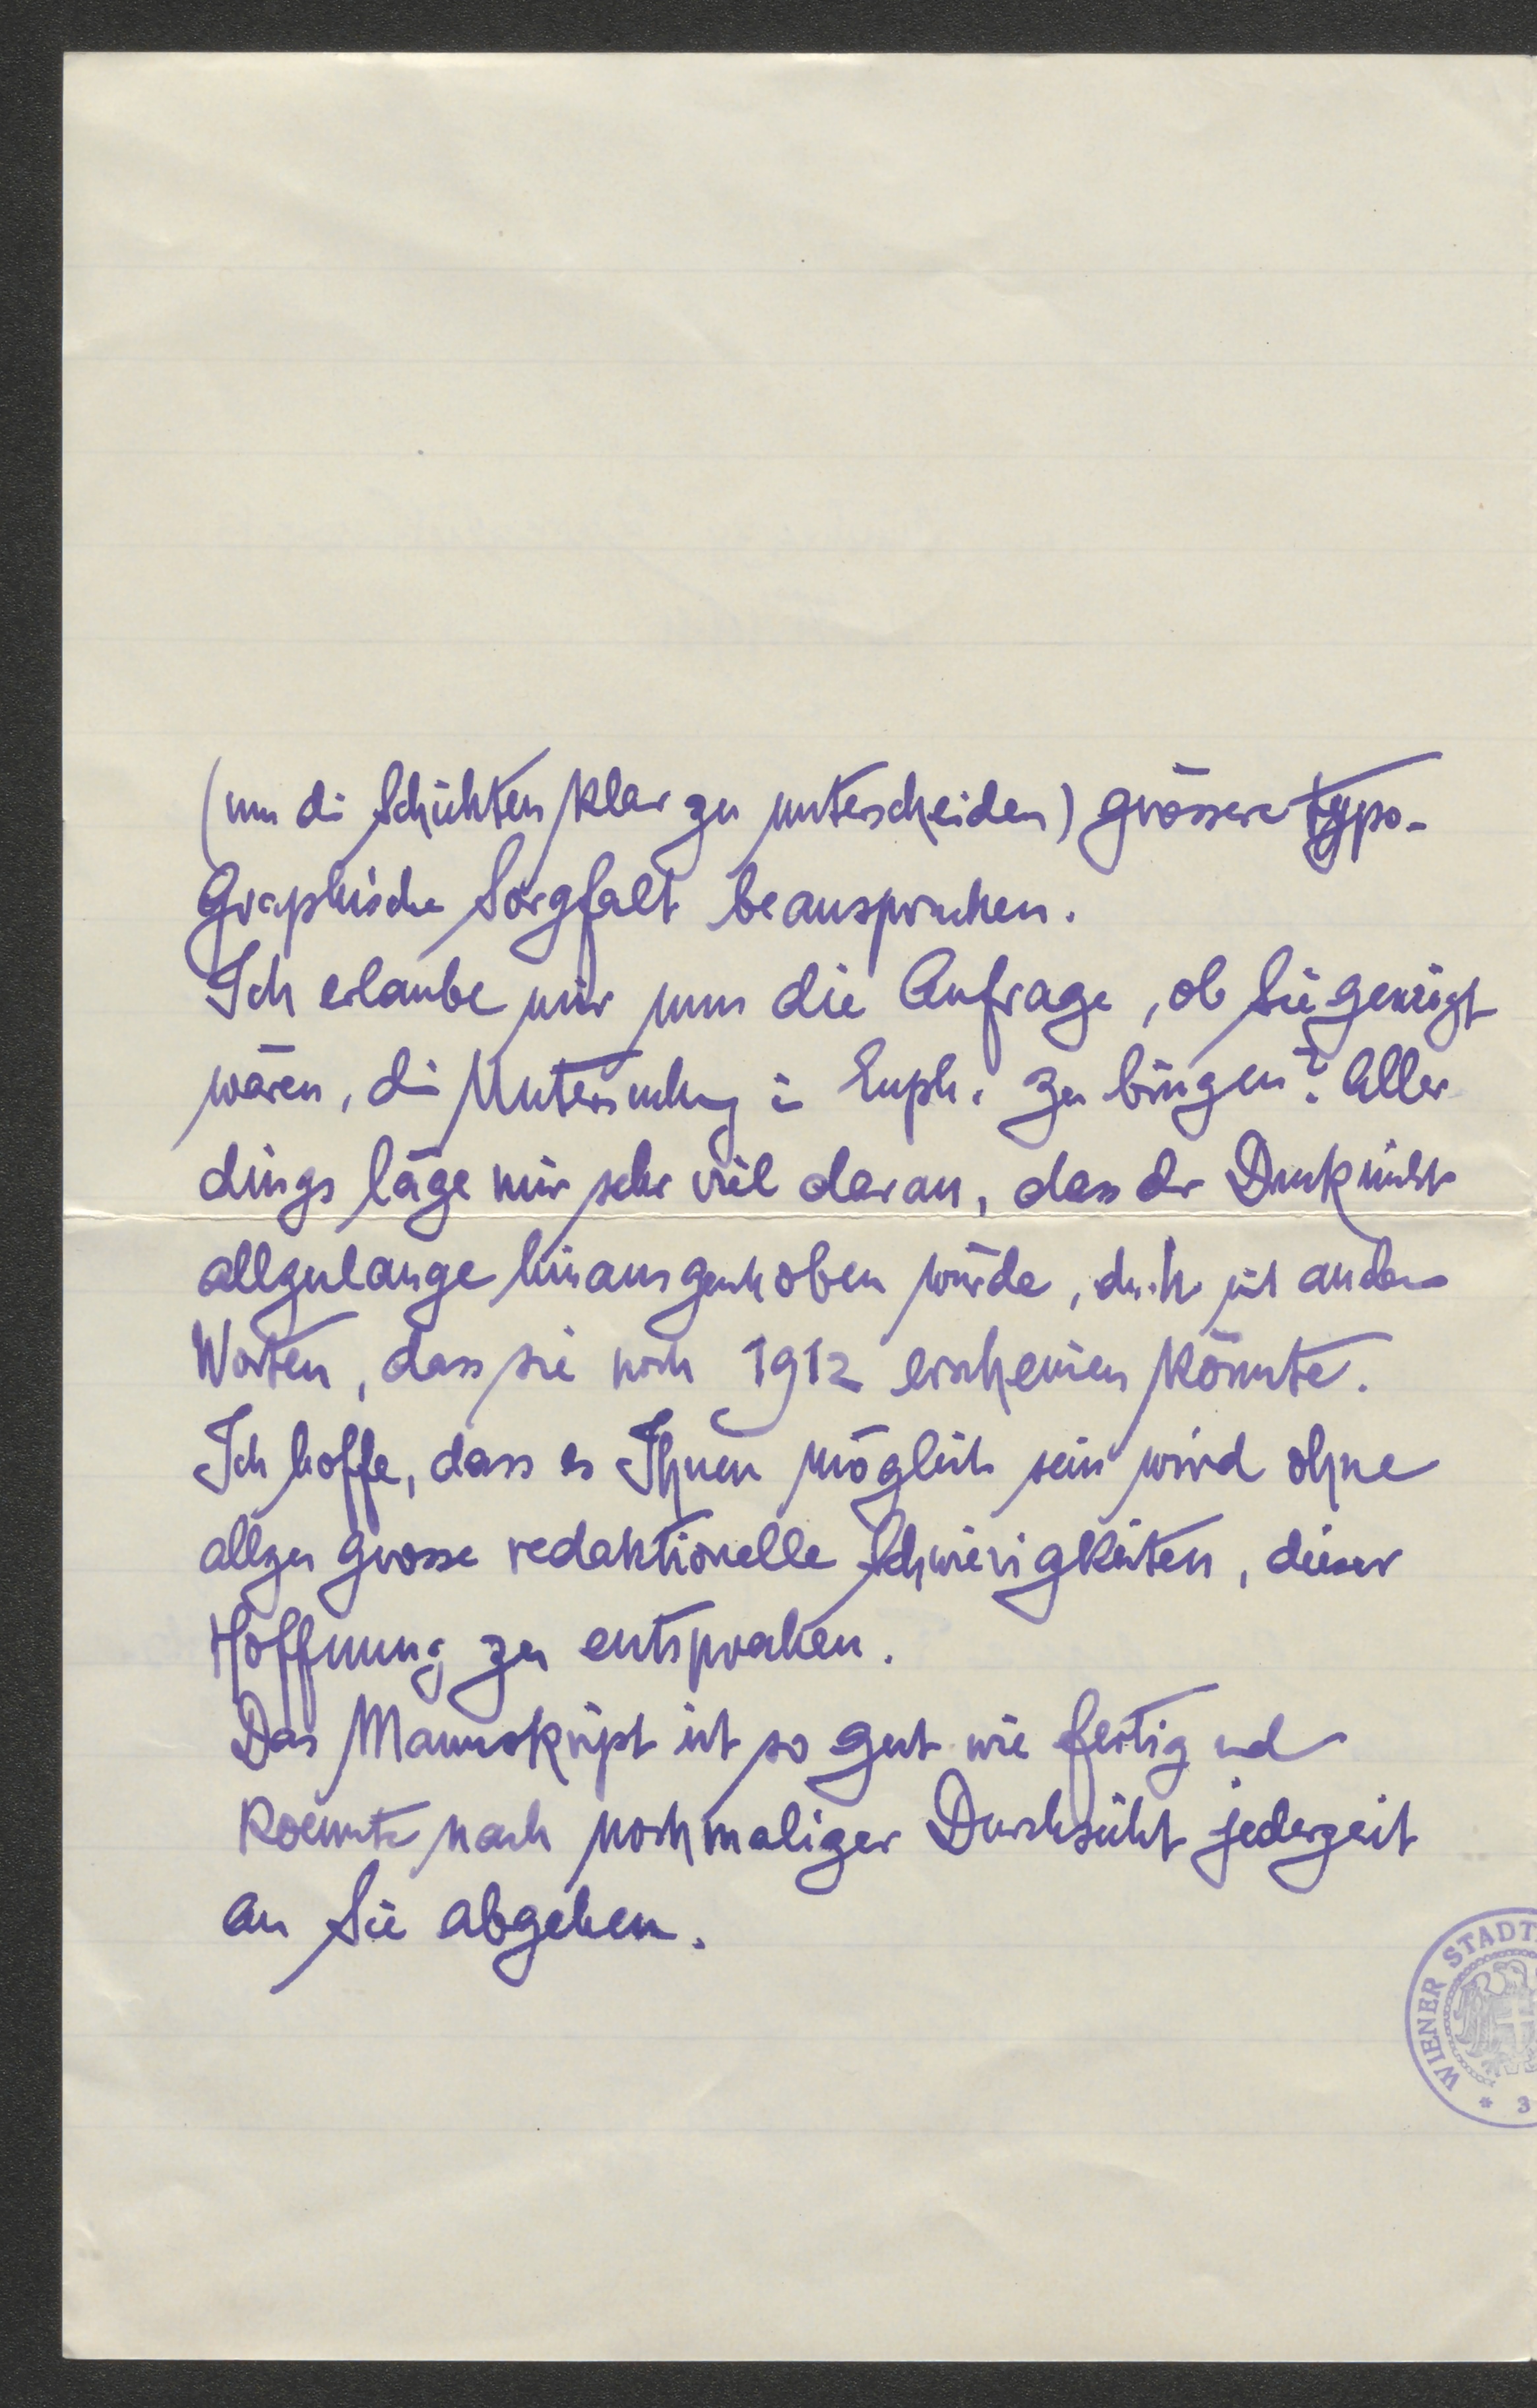 (um die Schichten klar zu unterscheiden) grössere typo-
graphische Sorgfalt beanspruchen.
Ich erlaube mir nun die Anfrage, ob Sie geneigt
wären, die Untersuchung in Euph. zu bringen? Aller
dings läge mir sehr viel daran, dass der Druck nicht
allzulange hinausgeschoben würde, d. h. mit andern
Worten, dass sie noch 1912 erscheinen könnte.
Ich hoffe, dass es Ihnen möglich sein wird ohne
allzu grosse redaktionelle Schwierigkeiten, dieser
Hoffnung zu entsprechen.
Das Manuskript ist so gut wie fertig und
koennte nach nochmaliger Durchsicht jederzeit
an Sie abgehen.
WIENER STADT
* 3